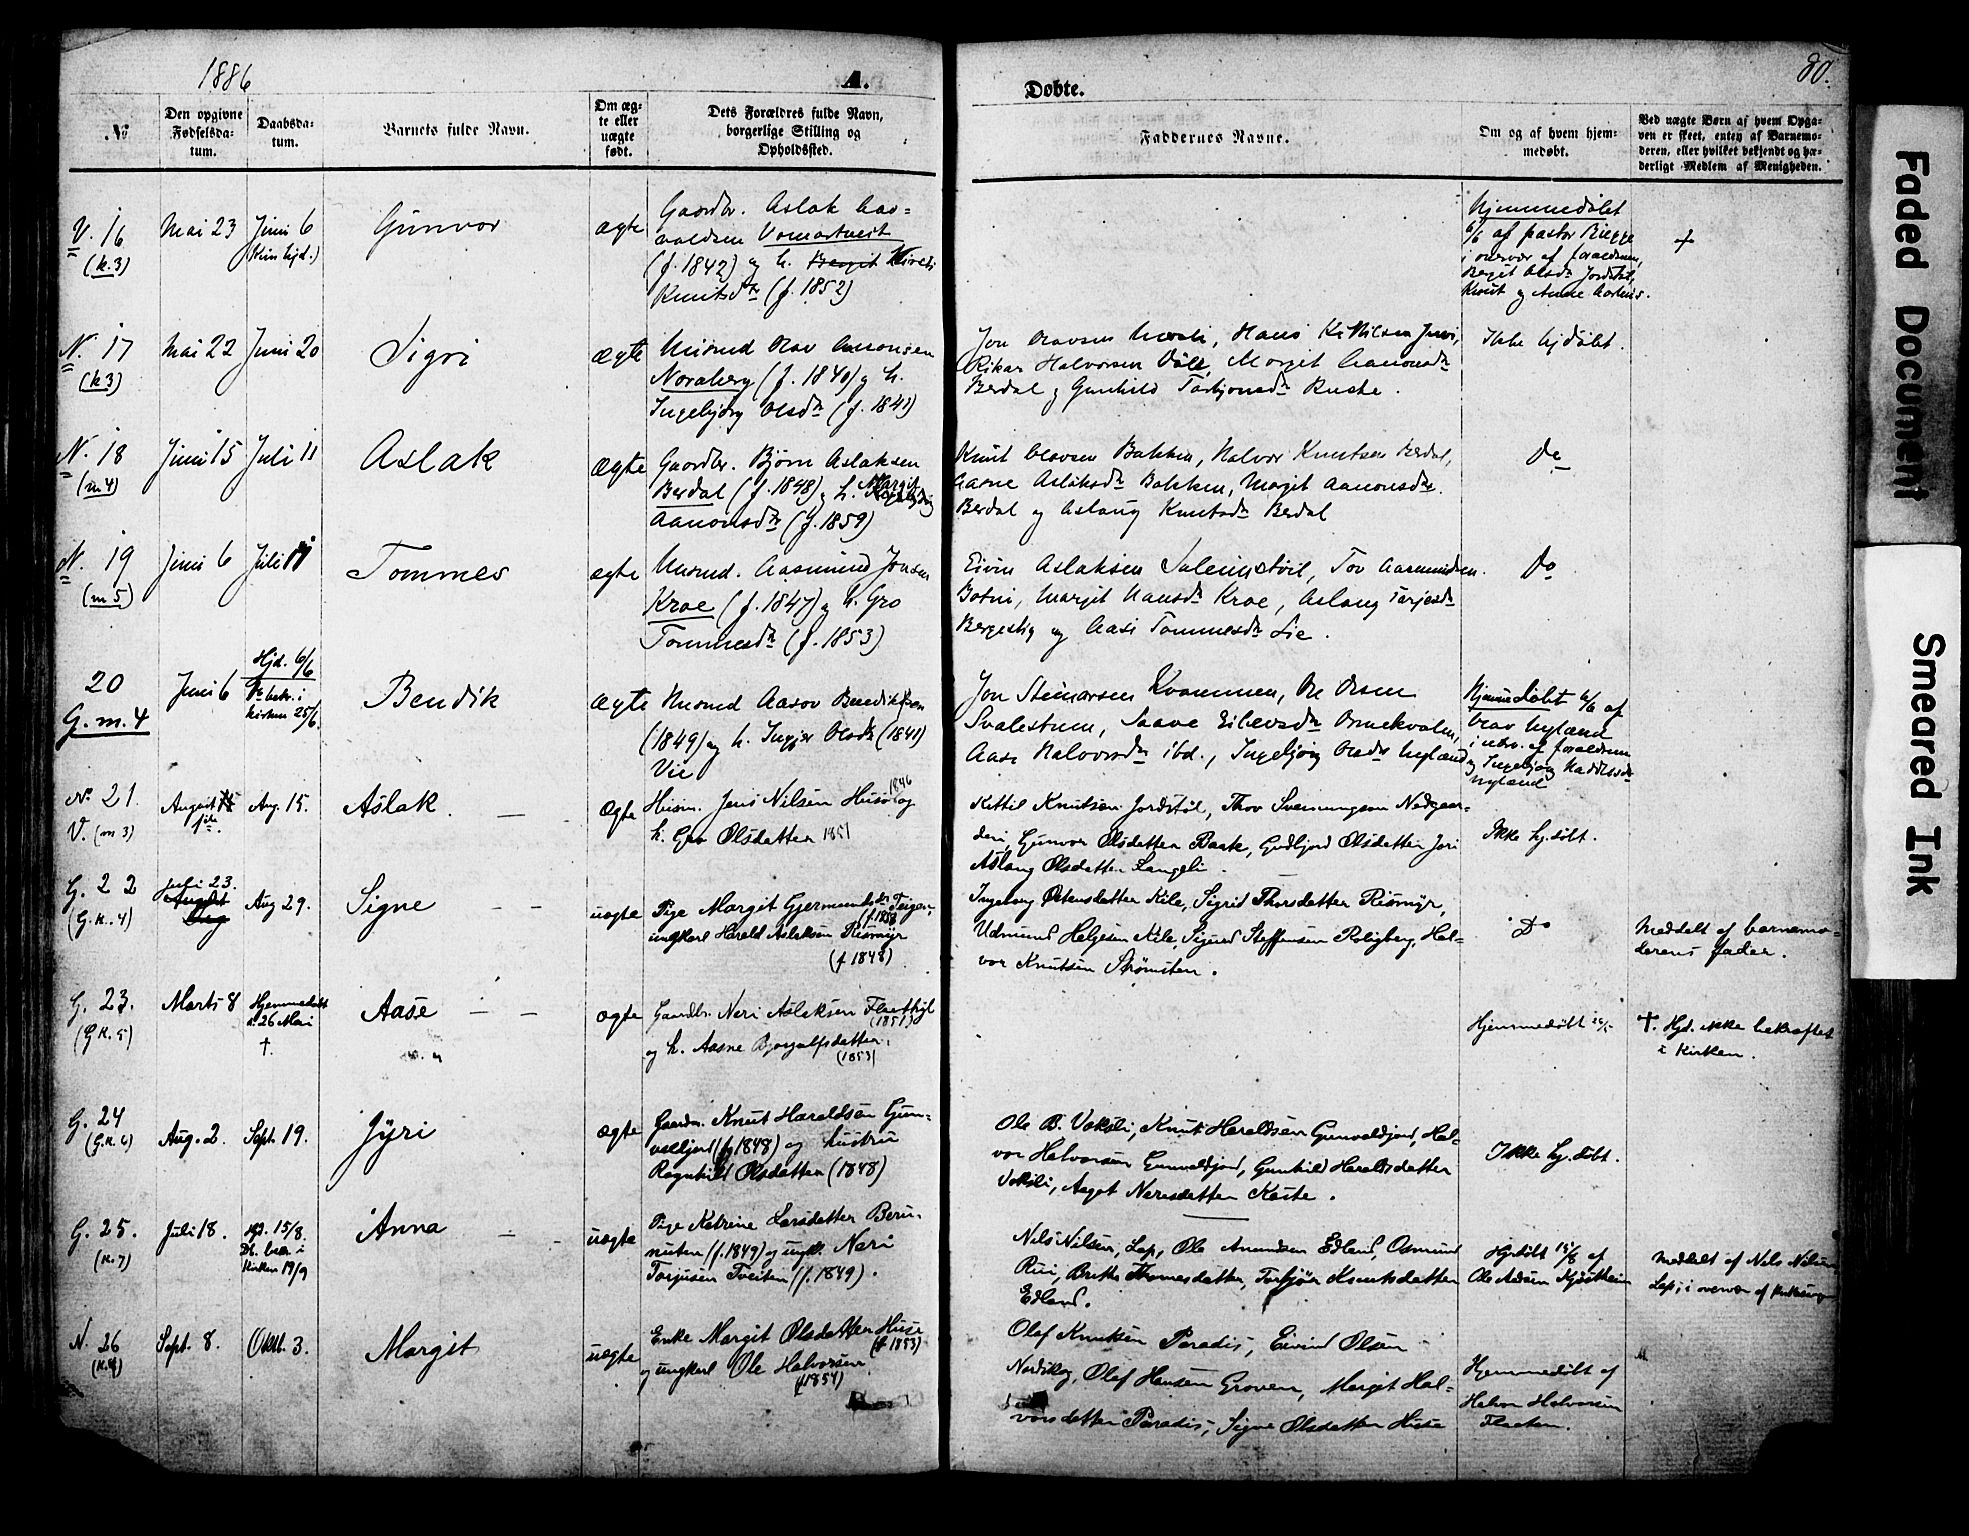 1886
A.
Døbte.
80.
№
Den opgivne
Fødselsda-
tum.
Daabsda-
tum.
Barnets fulde Navn.
Om æg-
te eller
uægte
født.
Dets Forældres fulde Navn,
borgerlige Stilling og
Opholdssted.
Faddernes Navne.
Om og af hvem hjem-
medøbt.
Ved uægte Børn af hvem Opga-
ven er skeet, enten af Barnemo-
deren, eller hvilket bekjendt og hæ-
derligt Medlem af Menigheden.
V. 16
(k.3)
Mai 23
Juni 6
Gunvor
ægte
Gaardbr. Aslak Aas-
valdsen
(f. 1842) og h. Bergit
Knutsdtr (f. 1852)
Hjemmedøbt
6/6 af pastor
i overvær af forældrene,
Bergit Olsdtr
Knut og Anne
+
N. 17
(k3)
Mai 22
Juni 20
Sigri
ægte
Husmd Olav Aanonsen
Noraberg (f. 1840) og h.
Ingebjørg Olsdtr (f. 1841)
Jon Olavsen Hans Kittilsen
Rikar Halvorsen Dåle, Margit Aanonsdtr
Berdal og Gunhild Tarkjønsdtr
Ikke hjdøbt.
N. 18
(m4)
Juni 15
Juli 11
Aslak
ægte
Gaardbr. Bjørn Aslaksen
Berdal (f. 1848) og h. Margit
Aanonsdtr (f. 1859)
Knut Olavsen Bakken, Halvor Knutsen Berdal,
Aasne Aslaksdtr Bakken, Margit Aanonsdtr
Berdal og Aslaug Knutsdtr Berdal
Do
N. 19
(m5)
Juni 6
Juli 11
Tommes
ægte
Husmd. Aasmund Jonsen
Kroe (f. 1847) og h. Gro
Tommesdtr (f. 1853)
Eivin Aslaksen Tov Aasmundsen
Botni, Margit Hansdtr Kroe, Aslaug Tarjesdtr
Bergestig og Aasi Tommesdtr Lie.
Do
20
G. m. 4
Juni 6
Hjd. 6/6
Db. bekr. i
kirken 25/6
Bendik
ægte
Husmd Aasov Bendiktsen
(1849) og h. Ingjer Olsdtr (1841)
Vii
Jon Steinarsen Kvammen, Ole Olsen
Svalestuen, Saave Eilevsdtr
Aase Halvorsdtr ibd., Ingebjørg Olsdtr Nyland
Hjemmedøbt 6/6 af
Olav Nyland
i overv. af forældrene
og Ingebjørg
Nyland
N. 21.
V. (m 3)
August
1ste
Aug. 15.
Aslak. — —
ægte
Husm. Jens Nilsen Husø og 1846
h. Gro Olsdatter 1851
Kittil Knutsen Jordstøl, Thov Svenungson Nedgaar-
den, Gunvor Olsdatter Baak, Gudbjørd Olsdatter Jori
Aslaug Olsdatter Langeli.
Ikke hj.døbt.
G. 22
(G.K. 4)
Juli 23.
August
Aug
Aug 29.
Signe — —
uægte
Pige Margit Gjermundsdtr Teigen,
(f. 1858
ungkarl Harald Aslaksøn Rismyr
(f 1848)
Ingebørg Østensdatter Kile, Sigrid Thorsdatter Rismyr,
Udmund Helgesen Kile, Sigurd Steffensen Roligberg, Hal-
vor Knutsen Strømsten.
Do
Meddelt af barnemo-
derens fader.
G. 23.
(G K. 5)
Marts 8
Hjemmedøbt
d. 26 Mai
†.
Aase — —
ægte
Gaardbr. Neri Aslaksøn Flaathyl
(1851)
og h. Aasne Bjørgulfsdatter.
(1853)
Hjemmedøbt 26/5
†. Hjd. ikke bekræftet
i Kirken.
G. 24
(G.K. 6)
Aug. 2.
Sept. 19.
Jyri
ægte
Gaardm. Knut Haraldsøn Gun-
valdjord (f 1848) og hustru
Ragnhild Olsdatter (1848)
Ole B. Vaksli, Knut Haraldsen Gunvaldjord, Hal-
vor Halvorsen Gunvaldjord, Gunhild Haraldsdatter
Vaksli, Aaget Nerisdatter Kaste.
Ikke hj. døbt.
G. 25.
(K. 7)
Juli 18.
Hjd. 15/8.
Db. bekr. i
Kirken 19/9
Anna — —
uægte
Pige Katrine Larsdatter Beru-
nuten (f. 1849) og ungk. Neri
Torjusen Tveiten (f. 1849).
Nils Nilsen, Lap, Ole Amundsen Edland, Osmund
Rui, Britte Thomesdatter, Torbjør Knutsdatter
Edland.
Hjdøbt 15/8 af
Ole Aasen
Meddelt af Nils Nilsen
Lap, i overvær af
N. 26
(K.4)
Sept. 8.
Oktb. 3.
Margit
uægte
Enke Margit Olsdatter Huse
(f 1853)
og ungkarl Ole Halvorsen
(f 1854)
Olaf Knutsen Paradis, Eivind Olsen
Nordskog, Olaf Hansen Groven, Margit Hal-
vorsdatter Paradis, Signe Olsdatter Huse
Hjemmedøbt af
Halvor Halvorsen
Flaaten.
Faded Document
Smeared Ink